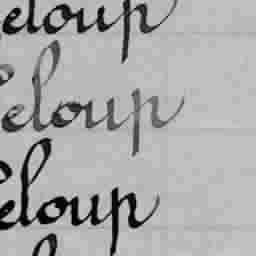 eloup
eloup
eloup